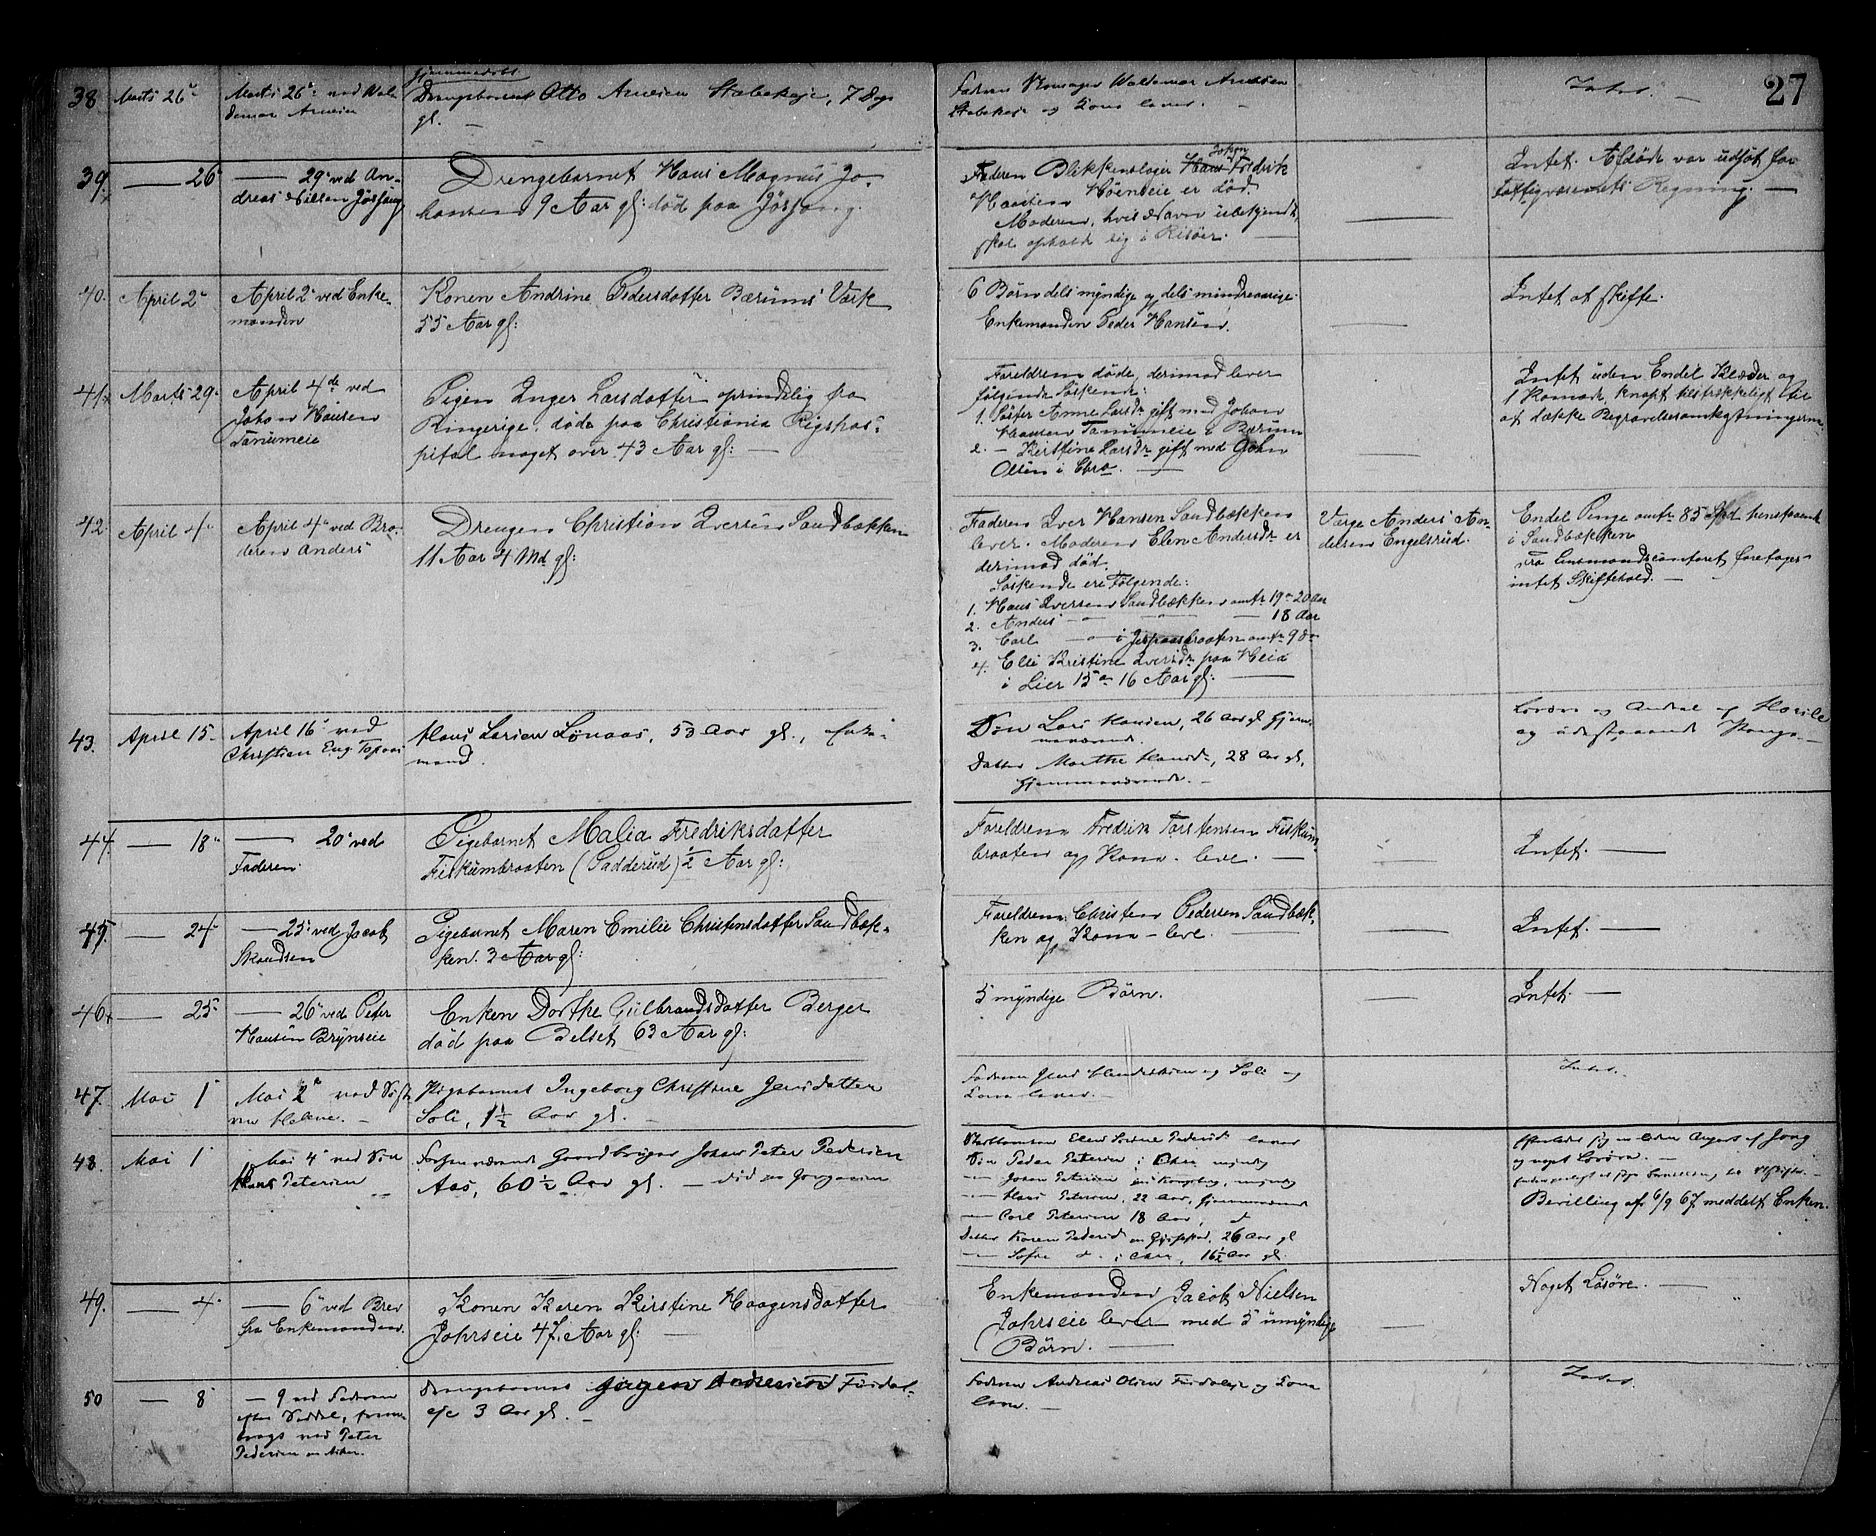 27
38 Marts 26. Marts 26. ved Wal-
demar Arnesen
Hjemmedøbt
Drengebarnet Otto Arnesen Stabekeje, 7 Dage
gl. —
Faderen Waldemar Arnesen
Stabekeje og Kone lever. —
Intet. —
39. — 26 — 29 ved An-
dreas Nilsen Jøssong
Drengebarnet Hans Magnus Jo-
hansen 9 Aar gl: død paa Jøssong.
Faderen Blikkenslager Johan Fredrik
Hansen Høeneie er død
Moderen, hvis Navn ubekjendt,
skal opholde sig i Risøer. —
Intet. Afdøde var udsat for
Fattigvæsenets Regning. —
40. April 2. April 2. ved Enke-
manden
Konen Andrine Pedersdatter Bærums Værk
55 Aar gl:
6 Børn dels myndige og dels mindreaarige.
Enkemanden Peder Hansen.
Intet at skifte.
41. Marts 29. April 4de ved
Johan Hansen
Tanumeie
Pigen Inger Larsdatter oprindelig fra
Ringerige. døde paa Christiania Rigshos-
pital noget over 43 Aar gl: —
Foreldrene døde, derimod lever
følgende Søskende:
1. Søster Anne Larsdr gift med Johan
Hansen Tanumeie i Bærum
2. — Kirstine Larsdr gift med John
Olsen i —
Intet uden Endel Klæder og
1 Komode, knapt tilstrækkeligt til
at dække Begravelsesomkostningerne.
42. April 4. April 4. ved Bro-
deren Anders
Drengen Christian Iversen Sandbækken
11 Aar 4 Md gl:
Faderen Iver Hansen Sandbækken
lever. Moderen Elen Andersdr er
derimod død.
Søskende ere Følgende:
1. Hans Iversen Sandbækken omtr 19 a 20 Aar
2. Anders — — — 18 Aar
3. Carl — i Jespaasbraaten omtr 9 do
4. Elli Kristine Iversdr paa Heia
i Lier 15 a 16 Aar gl: —
Værge Anders An-
dersen Engelsrud.
Endel Penge omtr 85 Spd henstaaende
i Sandbækken
Fra Lensmandscontoret foretages
intet Skiftehold. —
43. April 15. April 16. ved
Christian Eng Topaas
Hans Larsen Lønaas, 53 Aar gl., Enke-
mand.
Søn Lars Hansen, 26 Aar gl. Hjem-
meværende.
Datter Marthe Hansdr, 28 Aar gl,
Hjemmeværende. —
Løsøre og Andel af
og udestaaende Penge. —
44. — 18. — 20. ved
Faderen
Pigebarnet Malia Fredriksdatter
Fiskumbraaten (Sadderud) ½ Aar gl:
Foreldrene Fredrik Torstensen Fiskum-
braaten og Kone — leve. —
Intet. —
45. — 24. — 25. ved Jacob
Skoudsen
Pigebarnet Maren Emilie Christensdatter Sandbæk-
ken. 3 Aar gl:
Foreldrene: Christen Pedersen Sandbæk-
ken og Kone — leve. —
Intet. —
46. — 25. — 26. ved Peter
Hansen Brynseie
Enken Dorthe Gulbrandsdatter Berger
død paa Belset 63 Aar gl:
5 myndige Børn.
Intet. —
47. Mai 1. Mai 2. ved Søst-
ren Helene. —
Pigebarnet Ingeborg Christine Jensdatter
Soli, 1½ Aar gl. —
Faderen Jens Hendriksen Soli og
Kone lever. —
Intet.
48. Mai 1. Mai 4. ved Søn
Hans Petersen
Forhenværende Gaardbruger Johan Peter Pedersen
Aas, 60½ Aar gl. —
Elen Sørine Pedersdr lever
Søn Peder Petersen i myndig
— Johan Petersen paa Kongsberg, myndig
— Hans Petersen, 22 Aar, Hjemmeværende
— Carl Petersen 18 Aar, d
Datter Karen Pedersd 26 Aar gl
— Sofie d. 16½ Aar gl.
og noget Løsøre. —
Bevilling af 6/9 67 meddelt Enken.
49. — 4. — 6. ved Brev
fra Enkemanden.
Konen Karen Kirstine Haagensdatter
Johrseie 47 Aar gl: —
Enkemanden Jacob Nielsen
Johrseie lever med 5 umyndige
Børn. —
Noget Løsøre. —
50 — 8. — 9 ved Faderen
efter Seddel, frem-
bragt ved Peter
Pedersen
Drengebarnet Jørgen Andersen Furdal-
eje 3 Aar gl. —
Faderen Andreas Olsen Furdaleje og Kone
lever. —
Intet.